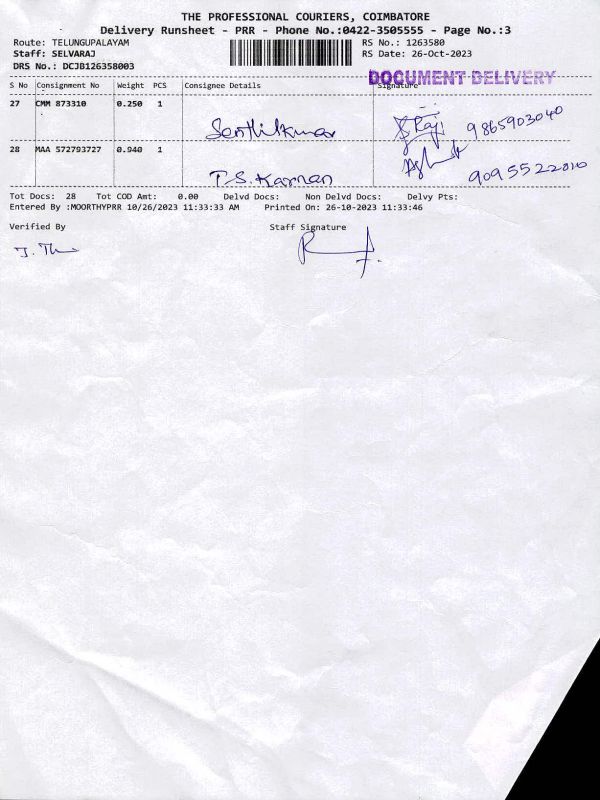 THE PROFESSIONAL COURIERS, COIMBATORE
Delivery Runsheet - PRR - Phone No.:0422-3505555 - Page No.:3
Route: TELUNGUPALAYAM RS No.: 1263580
Staff: SELVARAJ RS Date: 26-Oct-2023
DRS No.: DCJB126358003
DOCUMENT DELIVERY
S No Consignment No Weight PCS Consignee Details Signature
27 CMM 873310 0.250 1
Senthilkumar 9865903040
28 MAA 572793727 0.940 1
T.S. Karnan 9095522010
Tot Docs: 28 Tot COD Amt: 0.00 Delvd Docs: Non Delvd Docs: Delvy Pts:
Entered By :MOORTHYPRR 10/26/2023 11:33:33 AM Printed On: 26-10-2023 11:33:46
Verified By Staff Signature